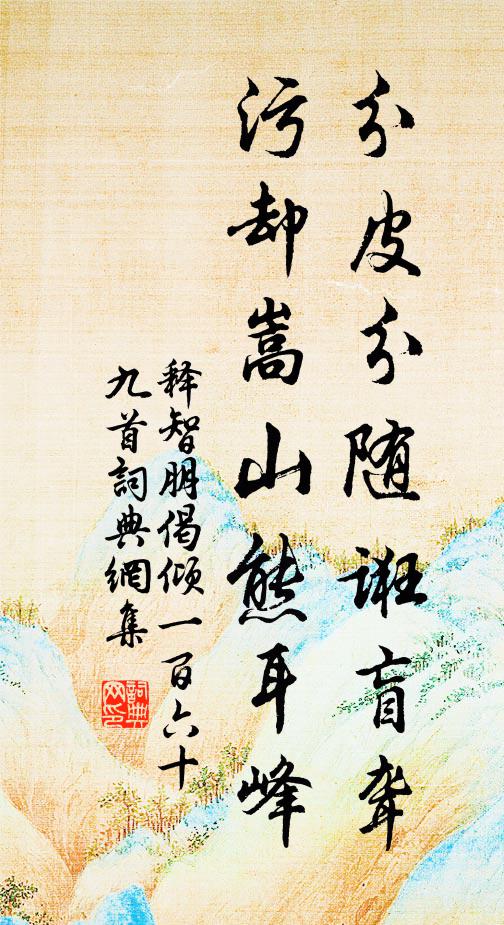 分皮分随誑盲聋
污却嵩山熊耳峰
释智朋偈倾一百六十
九首詞典網集
詞典
网印